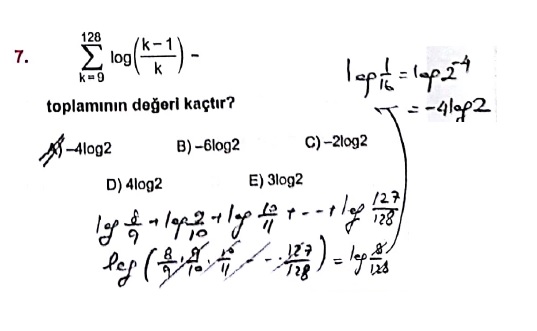 7. 128
∑ log(k−1/k) −
k=9
toplamının değeri kaçtır?
A) −4log2 B) −6log2 C) −2log2
D) 4log2 E) 3log2
log 1/16 = log 2^-4
= −4log2
log 8/9 + log 9/10 + log 10/11 + --- + log 127/128
log (8/9 · 9/10 · 10/11 - - · 127/128) = log 8/128